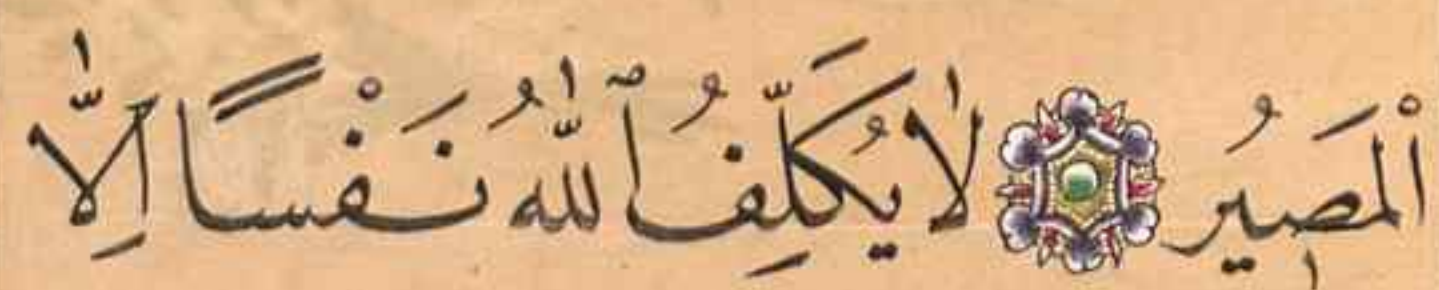 ٱلْمَصِيرُ لَا يُكَلِّفُ ٱللَّهُ نَفْسًا إِلَّا